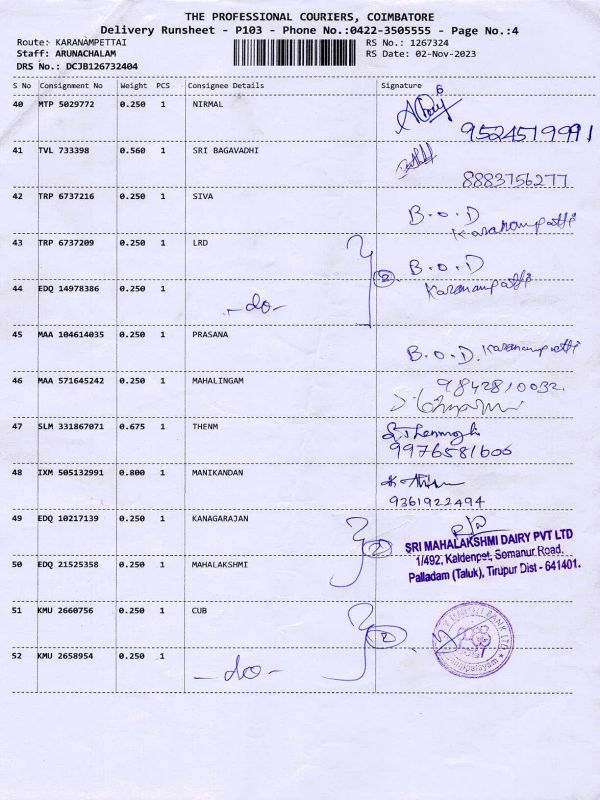 THE PROFESSIONAL COURIERS, COIMBATORE
Delivery Runsheet - P103 - Phone No.:0422-3505555 - Page No.:4
Route: KARANAMPETTAI RS No.: 1267324
Staff: ARUNACHALAM RS Date: 02-Nov-2023
DRS No.: DCJB126732404
S No Consignment No Weight PCS Consignee Details Signature
40 MTP 5029772 0.250 1 NIRMAL
9524519991
41 TVL 733398 0.560 1 SRI BAGAVADHI
8883756277
42 TRP 6737216 0.250 1 SIVA B.O.D
Karanampatti
43 TRP 6737209 0.250 1 LRD B.O.D
2
44 EDQ 14978386 0.250 1 Karanampatti
-do-
45 MAA 104614035 0.250 1 PRASANA B.O.D. Karanampatti
46 MAA 571645242 0.250 1 MAHALINGAM 9842810032
47 SLM 331867071 0.675 1 THENM
9976581606
48 IXM 505132991 0.800 1 MANIKANDAN
9361922494
49 EDQ 10217139 0.250 1 KANAGARAJAN
2
SRI MAHALAKSHMI DAIRY PVT LTD
1/492, Kaldenpet, Somanur Road.
50 EDQ 21525358 0.250 1 MAHALAKSHMI Palladam (Taluk), Tirupur Dist - 641401.
51 KMU 2660756 0.250 1 CUB
2
BANK LTD
52 KMU 2658954 0.250 1 -do-